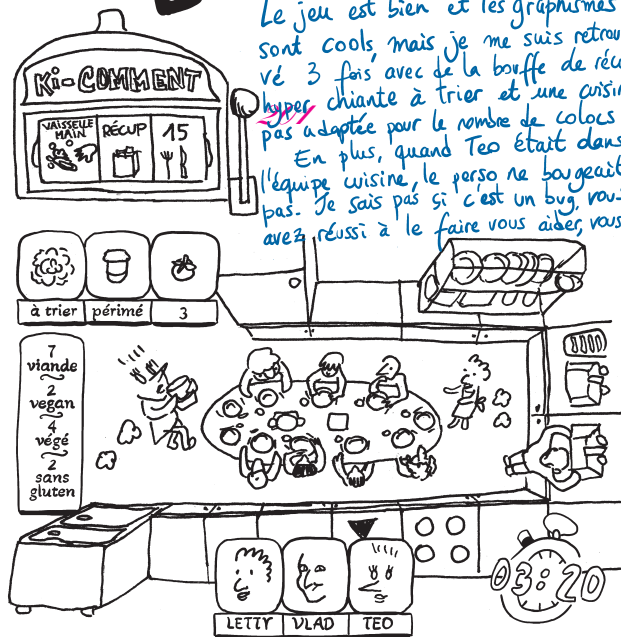 Le jeu est bien et les graphismes
sont cools, mais je me suis retrou-
vé 3 fois avec de la bouffe de récu
hyper chiante à trier et une cuisin
pas adaptée pour le nombre de colocs
En plus, quand Teo était dans
l'équipe cuisine, le perso ne bougeait
pas. Je sais pas si c'est un bug, vou
avez réussi à le faire vous aider, vous
KI-COMMENT
VAISSELLE MAIN
RÉCUP
15
à trier
périmé
3
7
viande
2
vegan
4
végé
2
sans
gluten
LETTY
VLAD
TEO
03:20